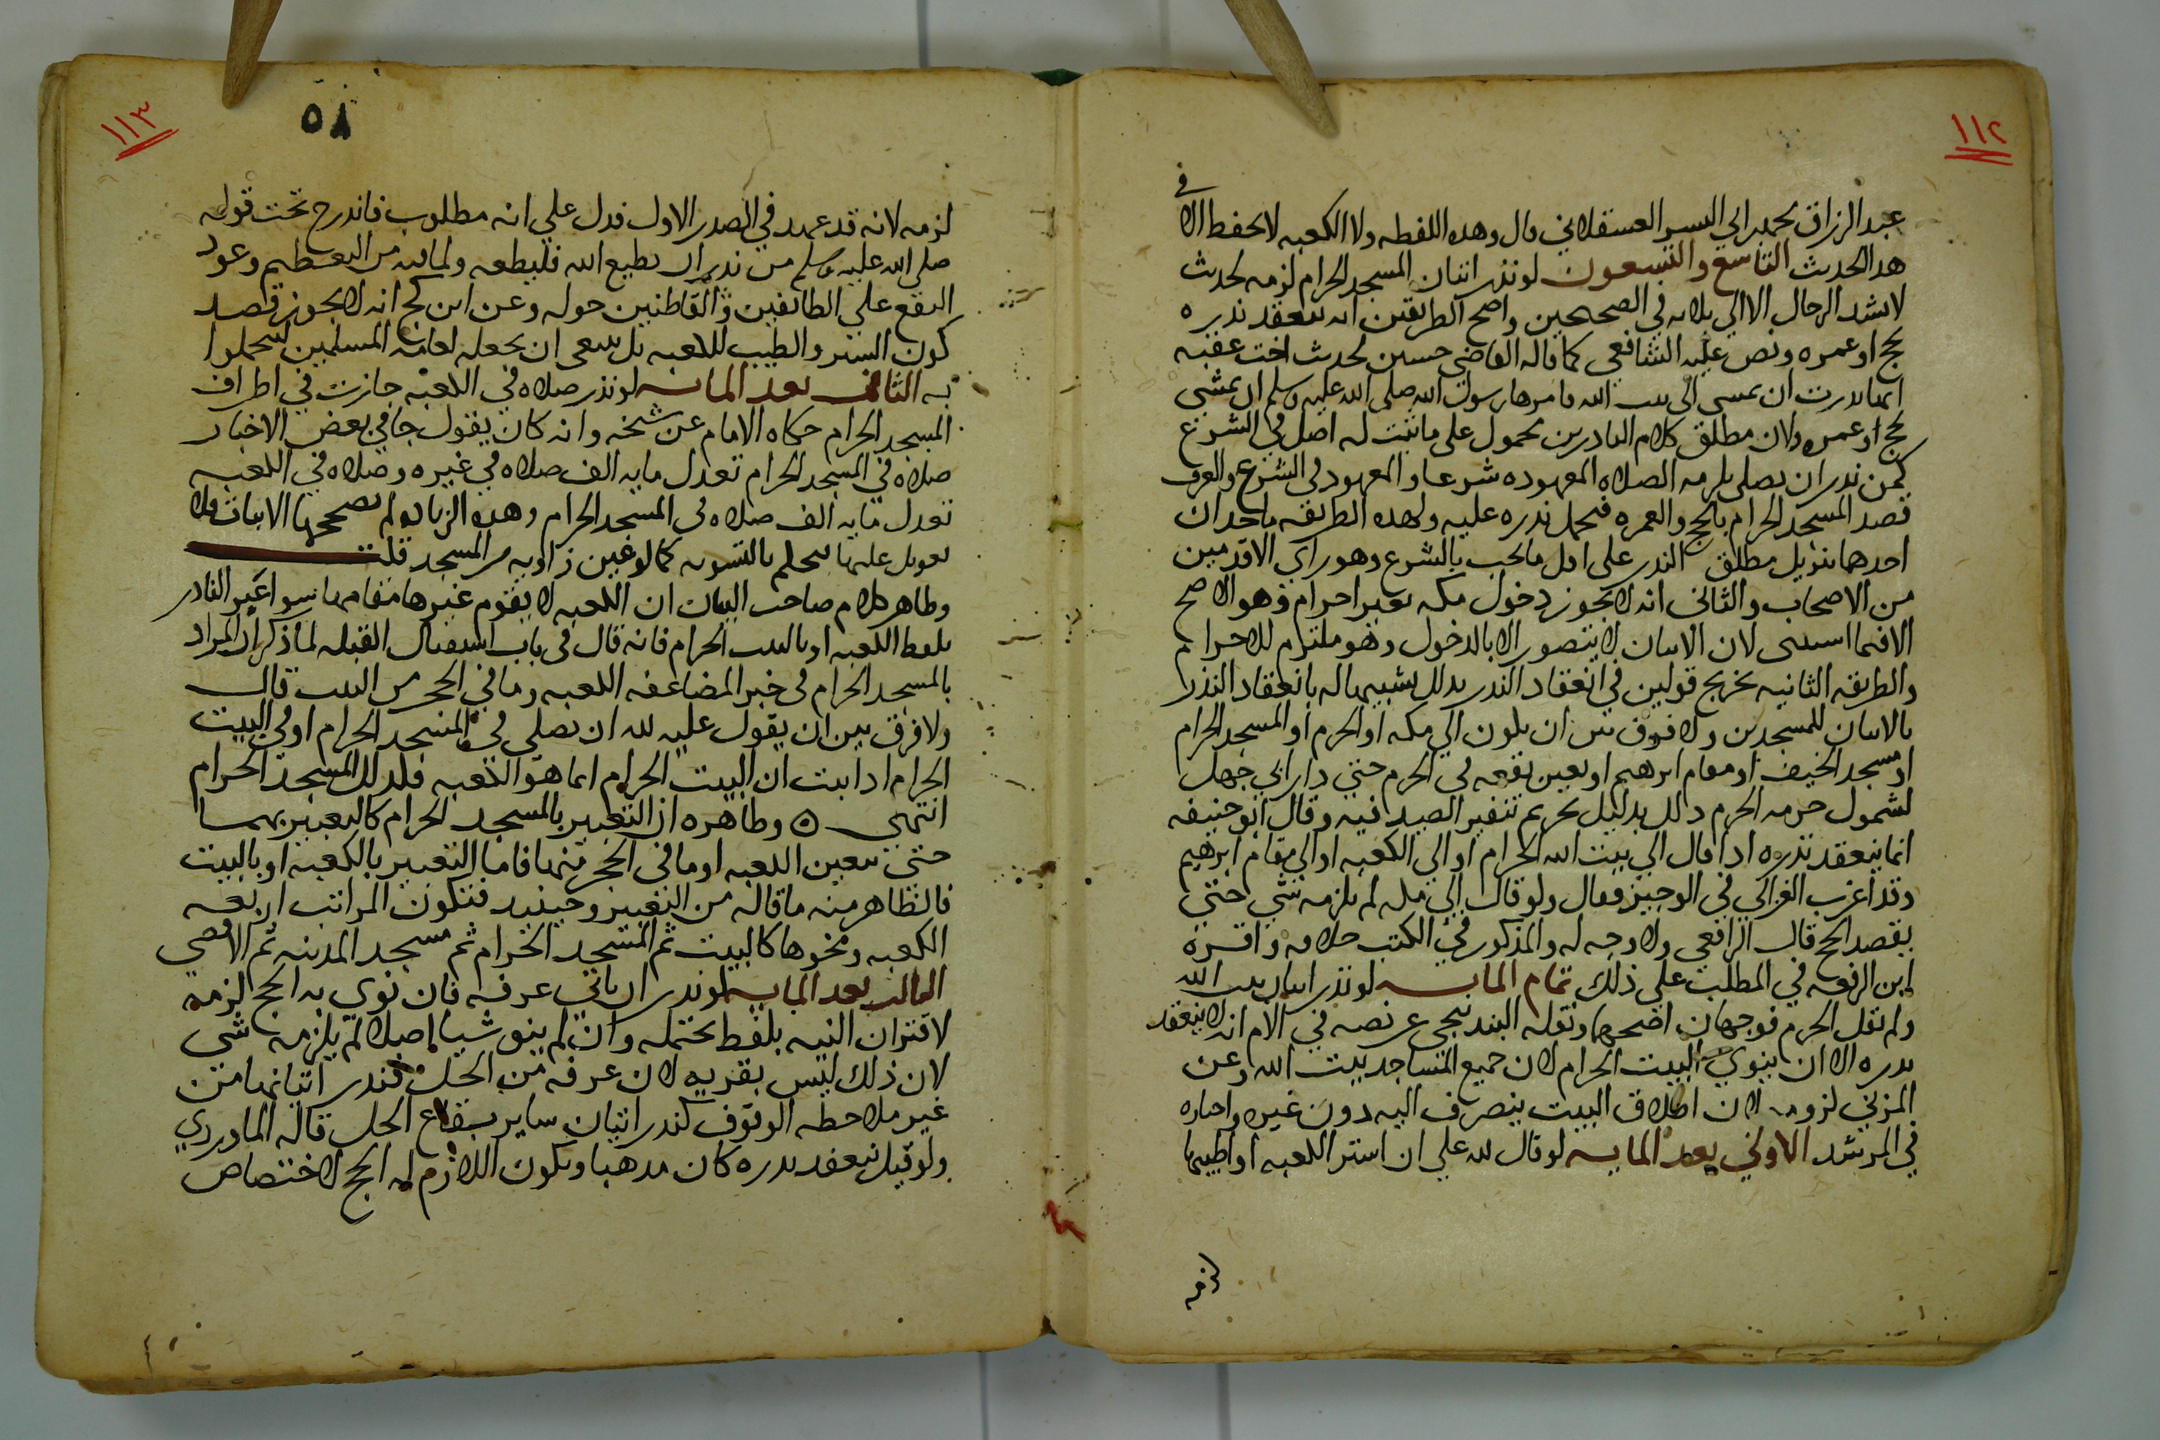 ١١٢
في
عبد الرزاق محمد بن ابي السر العسقلاني قال وهذه اللفظه ولا الكعبه لا يحفظ الا
هذا الحديث التاسع والتسعون لو نذر اتيان المسجد الحرام لزمه لحديث
لا تشد الرحال الا الي ثلاثه في الصحيحين واصح الطريقين انه ينعقد نذره
بحج او عمره ونص عليه الشافعي كما قاله القاضي حسين لحديث اخت عقبه
انها نذرت ان تمشي الي بيت الله فامرها رسول الله صلي الله عليه وسلم ان تمشي
بحج او عمره ولان مطلق كلام الناذرين محمول علي ما ثبت له اصل في الشرع
كمن نذر ان يصلي يلزمه الصلاه المعهوده شرعا والمعهود في الشرع والعرف
قصد المسجد الحرام بالحج والعمره فيحمل نذره عليه ولهذه الطريقه ماخذان
احدهما تنزيل مطلق النذر علي اقل ما يجب بالشرع وهو راي الاقدمين
من الاصحاب والثاني انه لا يجوز دخول مكه بغير احرام وهو الاصح
الا فيما استثني لان الاتيان لا يتصور الا بالدخول وهو ملتزم للاحرام
والطريقه الثانيه تخريج قولين في انعقاد النذر بذلك تشبيها له بانعقاد النذر
بالاتيان للمسجدين ولا فرق بين ان يكون الي مكه او الحرم او المسجد الحرام
او مسجد الخيف او مقام ابرهيم او بعين بقعه في الحرم حتي دار ابي جهل
لشمول حرمه الحرم ذلك بدليل تحريم تنفير الصيد فيه وقال ابو حنيفه
انما ينعقد نذره اذا قال الي بيت الله الحرام او الي الكعبه او الي مقام ابرهيم
وقد اغرب الغزالي في الوجيز فقال ولو قال الي مكه لم يلزمه شي حتي
يقصد الحج قال الرافعي ولا وجه له والمذكور في الكتب خلافه واقره
ابن الرفعه في المطلب علي ذلك تمام المايه لو نذر اتيان بيت الله
ولم يقل الحرم فوجهان اصحهما ونقله البندنيجي عن نصه في الام انه لا ينعقد
نذره الا ان ينوي البيت الحرام لان جميع المساجد بيت الله وعن
المزني لزومه لان اطلاق البيت ينصرف اليه دون غيره واختاره
في المرشد الاولي بعد المايه لو قال لله علي ان استر الكعبه او اطيبها
لزمه
١١٣
٥٨
لزمه لانه قد عهد في الصدر الاول فدل علي انه مطلوب فاندرج تحت قوله
صلي الله عليه وسلم من نذر ان يطيع الله فليطعه ولما فيه من التعظيم وعود
النفع علي الطائفين والقاطنين حوله وعن ابن كج انه لا يجوز قصد
كون الستر والطيب للكعبه بل ينبغي ان يجعله لعامه المسلمين ليتجملوا
به الثاني بعد المايه لو نذر صلاه في الكعبه جازت في اطراف
المسجد الحرام حكاه الامام عن شيخه وانه كان يقول جا في بعض الاخبار
صلاه في المسجد الحرام تعدل مايه الف صلاه في غيره وصلاه في الكعبه
تعدل مايه الف صلاه في المسجد الحرام وهذه الزياده لم يصححها الاثبات فلا
تعويل عليها فيحكم بالتسويه كما لو عين زاويه من المسجد قلت
وظاهر كلام صاحب البيان ان الكعبه لا يقوم غيرها مقامها سوا عبر الناذر
بلفظ الكعبه او بالبيت الحرام فانه قال في باب استقبال القبله لما ذكر ان المراد
بالمسجد الحرام في خبر المضاعفه الكعبه وما في الحجر من البيت قال
ولا فرق بين ان يقول عليه لله ان يصلي في المسجد الحرام او في البيت
الحرام اذا ثبت ان البيت الحرام انما هو الكعبه فكذلك المسجد الحرام
انتهي ه وظاهره ان التعبير بالمسجد الحرام كالتعبير بهما
حتي يتعين الكعبه او ما في الحجر منها فاما التعبير بالكعبه او بالبيت
فالظاهر منه ما قاله من التعيين وحينيد فتكون المراتب اربعه
الكعبه ونحوها كالبيت ثم المسجد الحرام ثم مسجد المدينه ثم الاقصي
الثالث بعد المايه لو نذر ان ياتي عرفه فان نوي به الحج لزمه
لاقتران النيه بلفظ يحتمله وان لم ينو شيا اصلا لم يلزمه شي
لان ذلك ليس بقربه لان عرفه من الحل فنذر اتيانها من
غير ملاحظه الوقوف كنذر اتيان ساير بقاع الحل قاله الماوردي
ولو قيل ينعقد نذره كان مذهبا ويكون اللازم له الحج لاختصاص